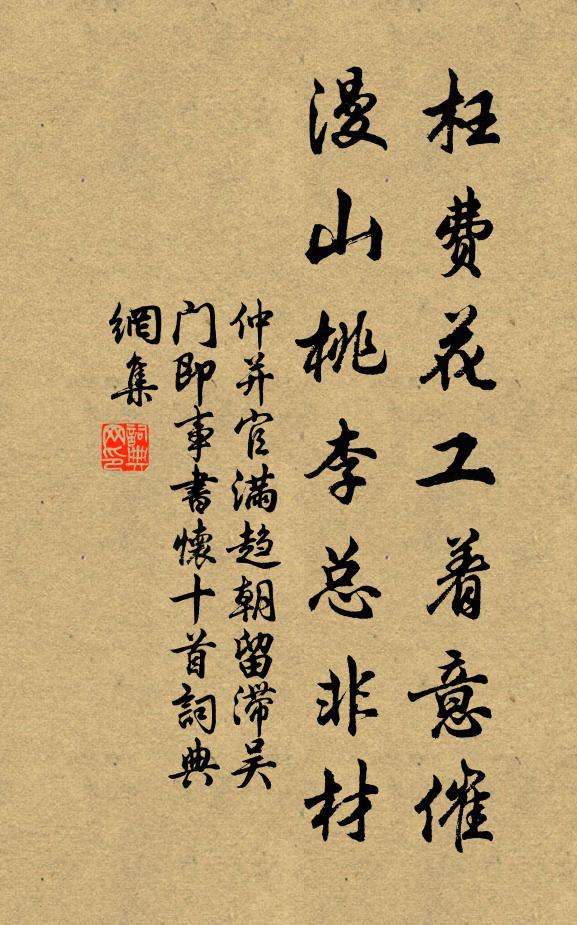 枉费花工着意催
漫山桃李总非材
仲并官满趋朝留滞吴
门即事书懷十首詞典
網集
詞典
网印